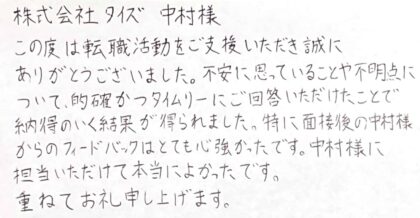 株式会社タイズ 中村様
この度は転職活動をご支援いただき誠に
ありがとうございました。不安に思っていることや不明点に
ついて、的確かつタイムリーにご回答いただけたことで
納得のいく結果が得られました。特に面接後の中村様
からのフィードバックはとても心強かったです。中村様に
担当いただけて本当によかったです。
重ねてお礼申し上げます。